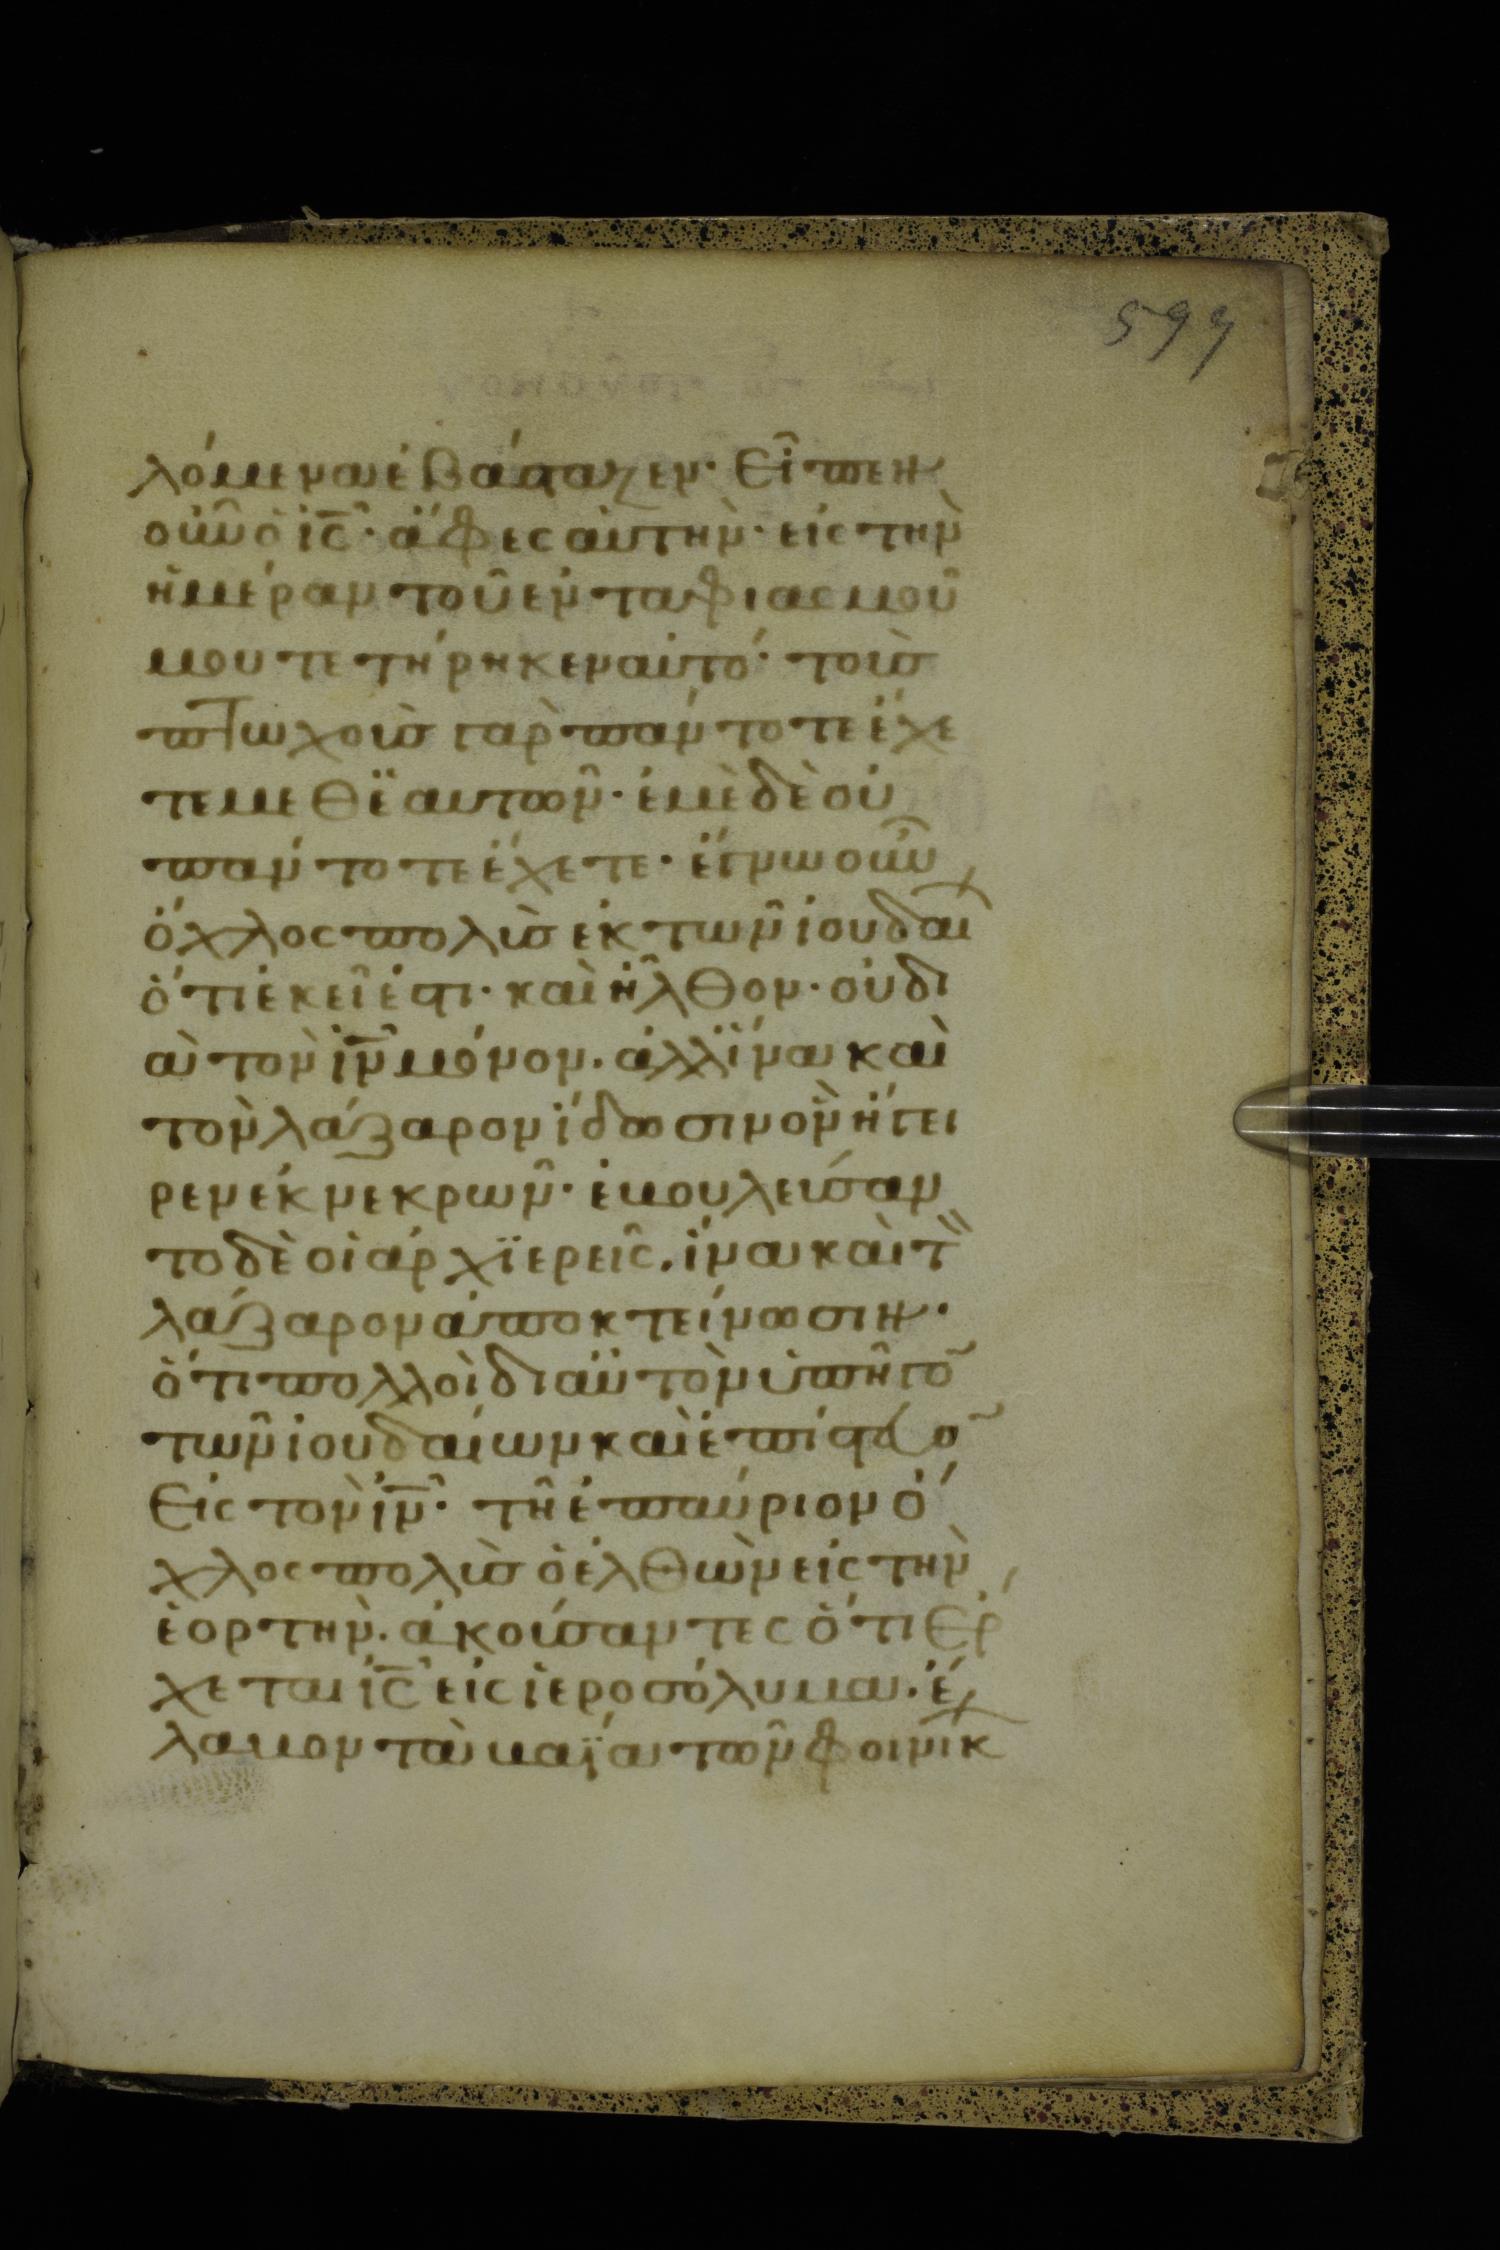 599
λόμενα ἐβάσταζεν· Εἶπεν
οὖν ὁ ις̅· ἄφες αὐτὴν· εἰς τὴν
ἡμέραν τοῦ ἐνταφιασμοῦ
μου τετήρηκεν αὐτό· τοὺς
πτωχοὺς γὰρ πάντοτε ἔχε
τε μεθ' ἑαυτῶν· ἐμὲ δὲ οὐ
πάντοτε ἔχετε· ἔγνω οὖν
ὄχλος πολὺς ἐκ τῶν ἰουδαί
ὅτι ἐκεῖ ἐστι· καὶ ἦλθον· οὐ δι
ὰ τὸν ιν̅ μόνον. ἀλλ' ἵνα καὶ
τὸν λάζαρον ἴδωσιν ὃν ἤγει
ρεν ἐκ νεκρῶν· ἐβουλεύσαν
το δὲ οἱ ἀρχϊερεῖς, ἵνα καὶ τ̀̀
λάζαρον ἀποκτείνωσιν·
ὅτι πολλοὶ δι αὐτὸν ὑπῆγο̅
τῶν ἰουδαίων καὶ ἐπίστευο̅
Εἰς τὸν ιν̅· τῆ ἐπαύριον ὄ
χλος πολὺς ὁ ἐλθὼν εἰς τὴν
ἑορτὴν. ἀκούσαντες ὅτι Ἔρ
χεται ις̅ εἰς ἱεροσόλυμα. ἔ
λαβον τὰ βαΐα τῶν φοινίκ